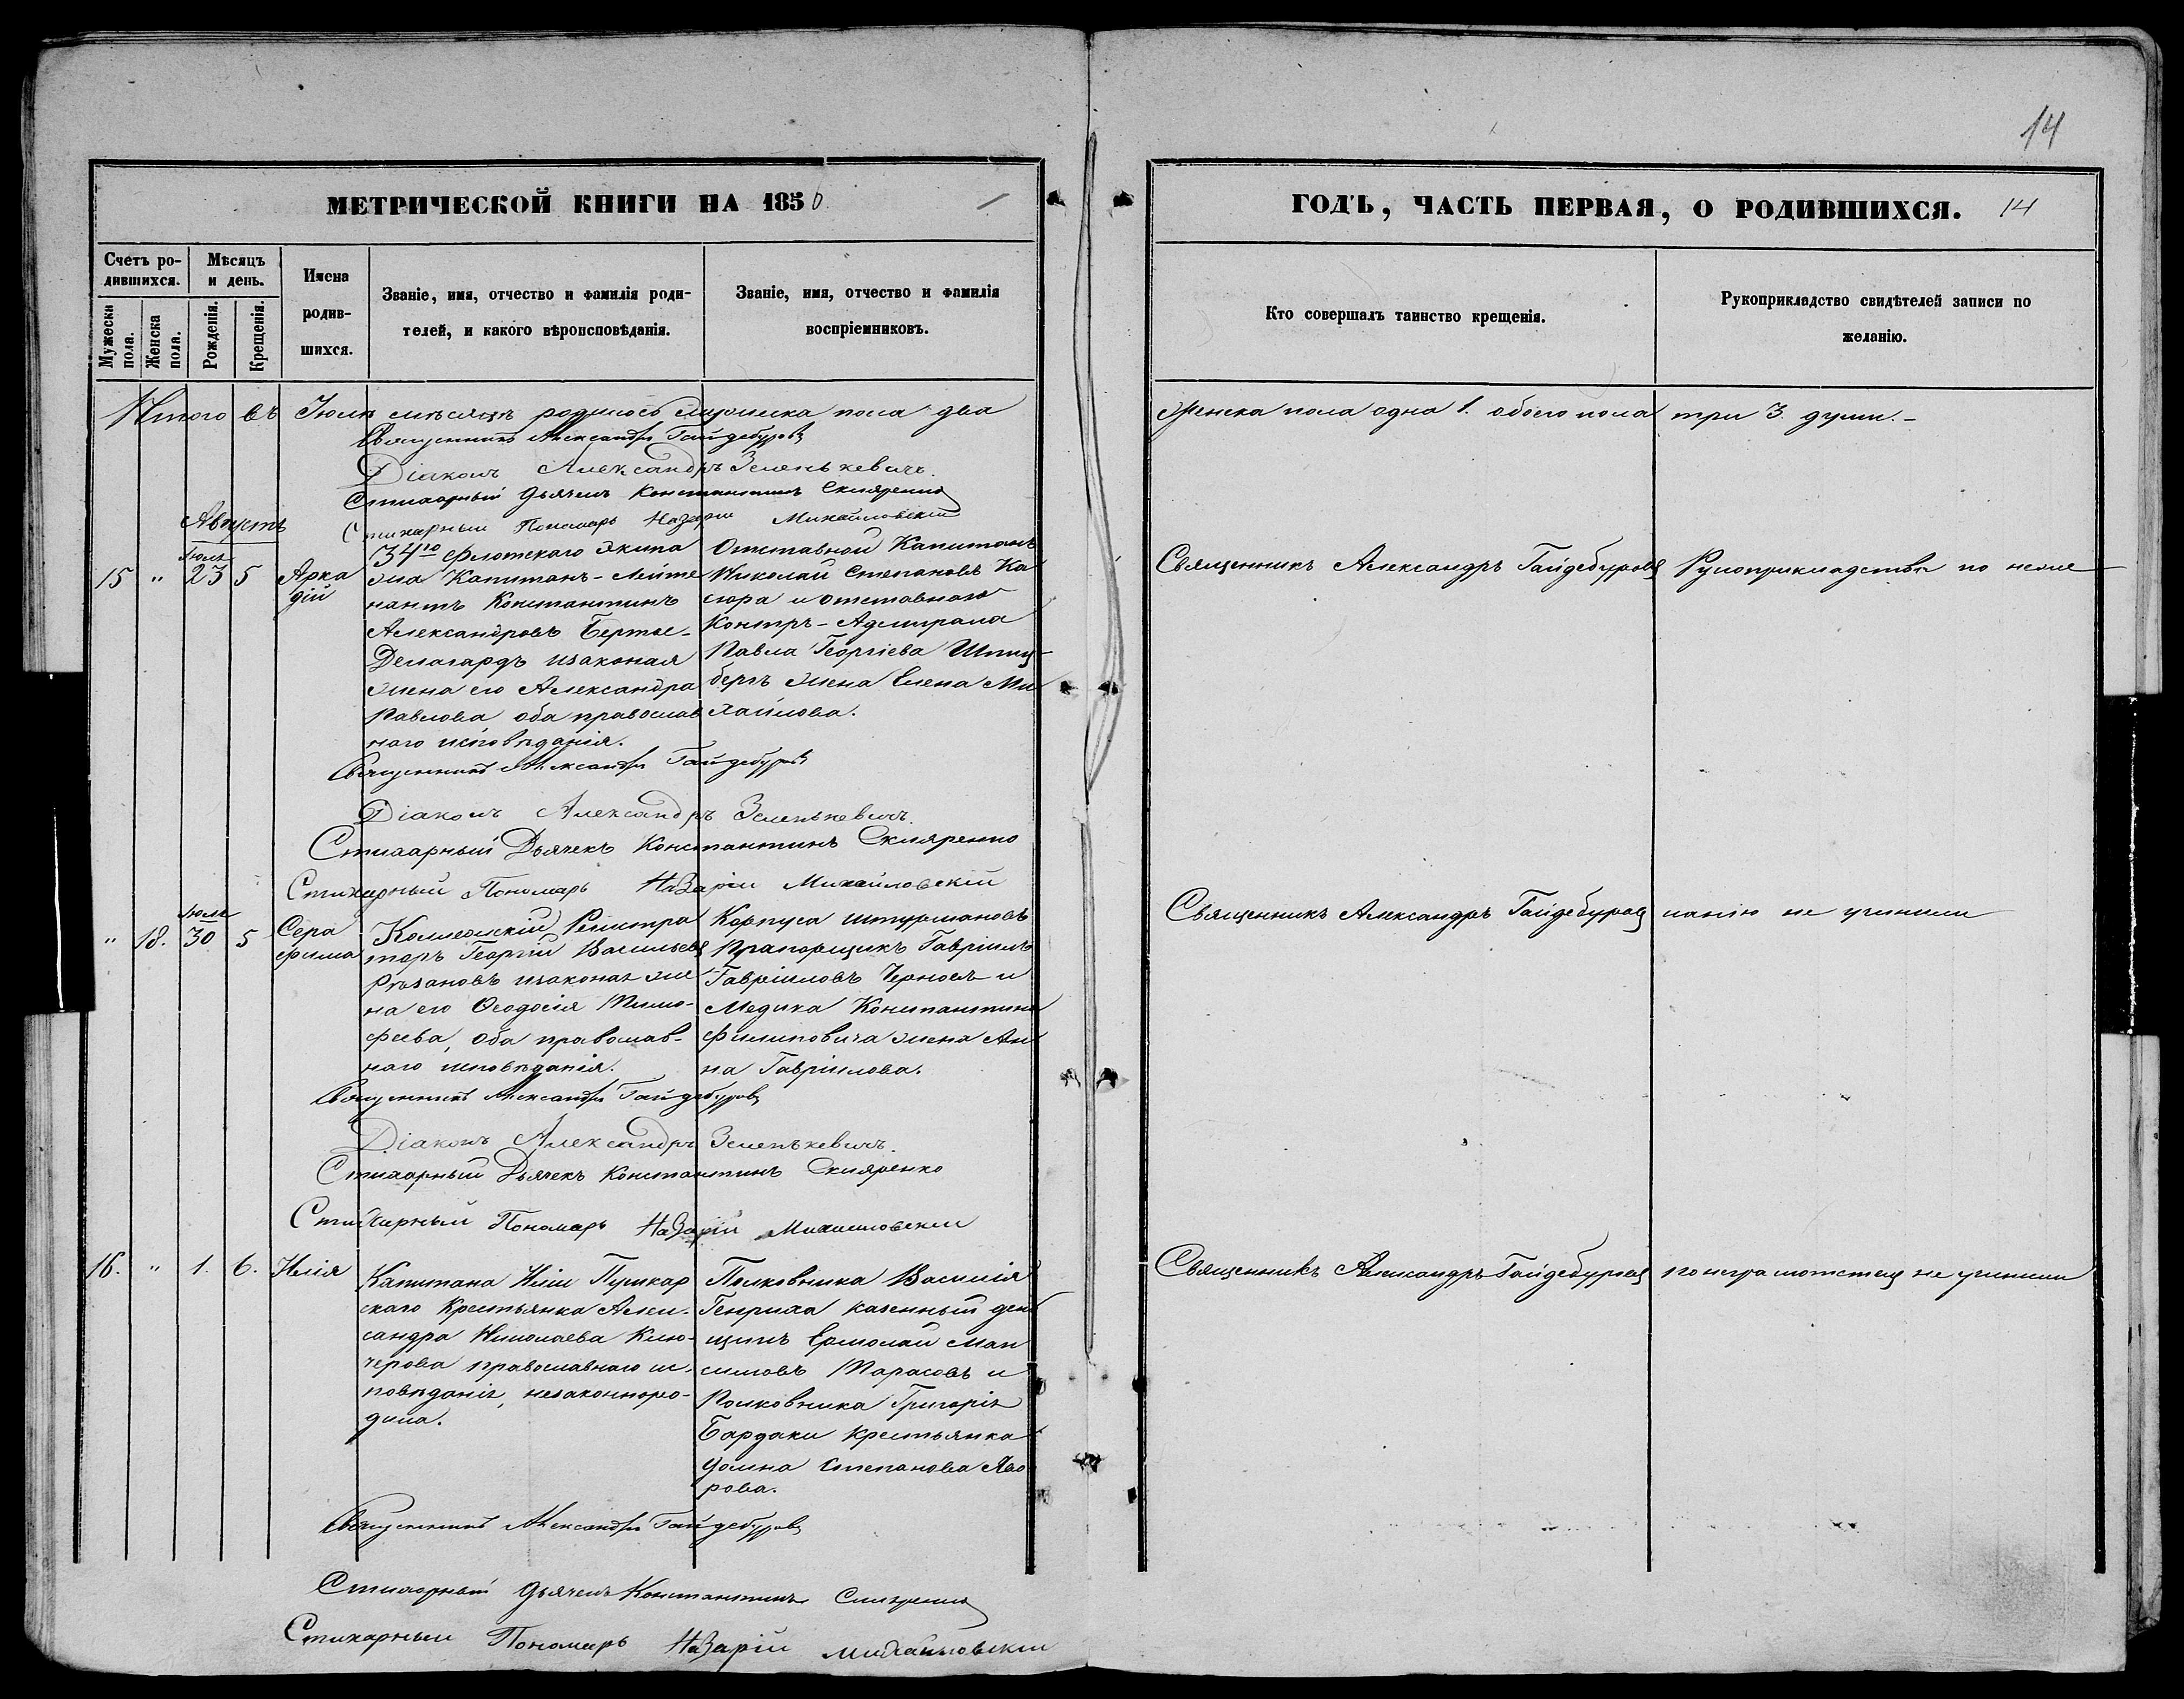 14
МЕТРИЧЕСКОЙ КНИГИ НА 1850
ГОДЪ, ЧАСТЬ ПЕРВАЯ, О РОДИВШИХСЯ. 14
Счетъ ро-
дившихся.
Мужеска
пола.
Женска
пола.
Мѣсяцъ
и день.
Рожденія.
Крещенія.
Имена
родив-
шихся.
Званіе, имя, отчество и фамилія роди-
телей, и какого вѣроисповѣданія.
Званіе, имя, отчество и фамилія
воспріемниковъ.
Кто совершалъ таинство крещенія.
Рукоприкладство свидѣтелей записи по
желанію.
Итого въ Іюлѣ мѣсяцѣ родилось мужеска пола два
женска пола одна 1. обоего пола три 3. души.-
Священникъ Александръ Гайдебуровъ
Діаконъ Александръ Зеленькевичъ.
Стихарный Дьячекъ Константинъ Скляренко
Стихарный Пономарь Назарій Михайловскій
Августъ
15 " Іюля 23 5
Арка
дій
34го флотскаго экипа
жа Капитанъ-Лейте
нантъ Константинъ
Александровъ Бертье-
Делагардъ изаконая
жена его Александра
Павлова оба православ
наго исповѣданія.
Отставной Капитанъ
Николай Степановъ Ка
сюра и отставнаго
Контръ-Адмирала
Павла Георгіева Шпиц-
бергъ жена Елена Ми
хайлова.
Священникъ Александръ Гайдебуровъ
Рукоприкладства по неже
Священникъ Александръ Гайдебуровъ
Діаконъ Александръ Зеленькевичъ.
Стихарный Дьячекъ Константинъ Скляренко
Стихарный Пономарь Назарій Михайловскій
" 18. Іюля 30 5
Сера
фима
Коллежскій Регистра
торъ Георгій Васильевъ
Рѣзановъ изаконая же
на его Ѳеодосія Тимо-
феева, оба православ-
наго исповѣданія.
Корпуса штурмановъ
Прапорщикъ Гавріилъ
Гавріиловъ Черновъ и
Медика Константина
Филиповича жена Ан
на Гавріилова.
Священникъ Александръ Гайдебуровъ
ланію не учинили
Священникъ Александръ Гайдебуровъ
Діаконъ Александръ Зеленькевичъ.
Стихарный Дьячекъ Константинъ Скляренко
Стихарный Пономарь Назарій Михайловскій
16. " 1. 6.
Илія
Капитана Иліи Пушкар
скаго Крестьянка Алек-
сандра Николаева Клю-
черова православнаго ис-
повѣданія, незаконноро-
дила.
Полковника Василія
Генриха казенный ден
щикъ Ермолай Мак
симовъ Тарасовъ и
Полковника Григорія
Бардаки крестьянка
Домна Степанова Яво
рова.
Священникъ Александръ Гайдебуровъ
не учинили
Священникъ Александръ Гайдебуровъ
Стихарный Дьячекъ Константинъ Скляренко
Стихарный Пономарь Назарій Михайловскій